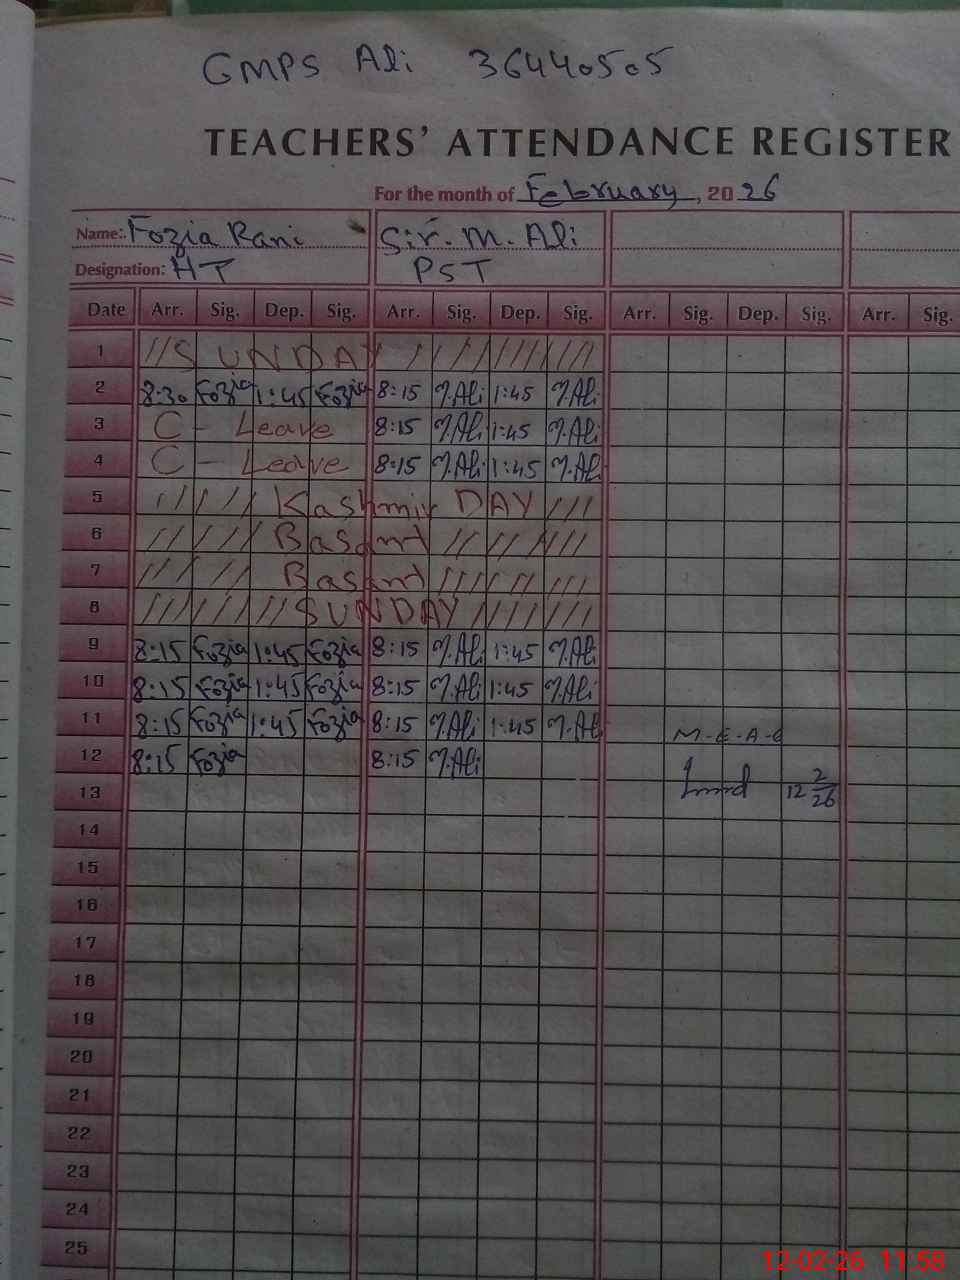 GMPS Ali 36440505
TEACHERS' ATTENDANCE REGISTER
For the month of February, 2026
Name: Fozia Rani Sir. M. Ali
Designation: HT PST
Date Arr. Sig. Dep. Sig. Arr. Sig. Dep. Sig. Arr. Sig. Dep. Sig. Arr. Sig.
1 SUNDAY
2 8:30 Fozia 1:45 Fozia 8:15 M.Ali 1:45 M.Ali
3 C - Leave 8:15 M.Ali 1:45 M.Ali
4 C - Leave 8:15 M.Ali 1:45 M.Ali
5 Kashmir DAY
6 Basant
7 Basant
8 SUNDAY
9 8:15 Fozia 1:45 Fozia 8:15 M.Ali 1:45 M.Ali
10 8:15 Fozia 1:45 Fozia 8:15 M.Ali 1:45 M.Ali
11 8:15 Fozia 1:45 Fozia 8:15 M.Ali 1:45 M.Ali M-E-A-
12 8:15 Fozia 8:15 M.Ali
13 12 2/26
14
15
16
17
18
19
20
21
22
23
24
25
12-02-26 11:58